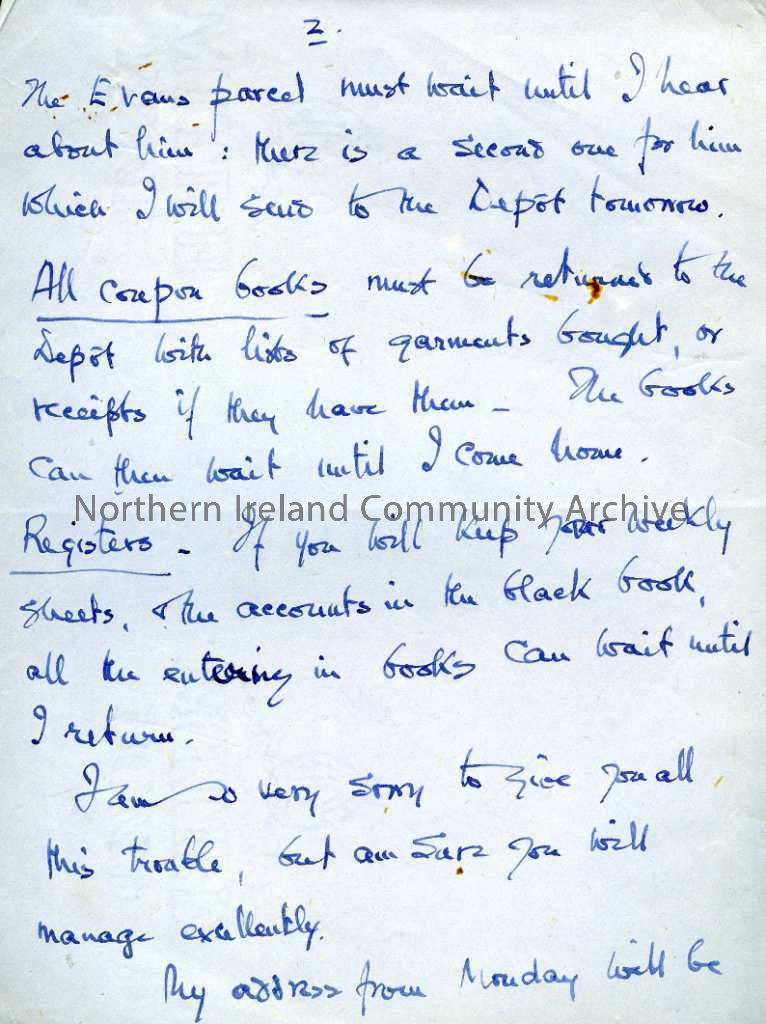 2.
The Evans parcel must wait until I hear
about him : there is a second one for him
which I will send to the Depôt tomorrow.
All coupon books must be returned to the
Depôt with lists of garments bought, or
receipts if they have them - The books
can then wait until I come home.
Northern Ireland Community Archive
Registers - If you will keep your weekly
sheets, & the accounts in the black book,
all the entering in books can wait until
I return.
I am so very sorry to give you all
this trouble, but am sure you will
manage excellently.
My address from Monday will be